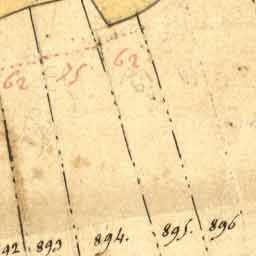 62 75 62
92 893 894. 895. 896